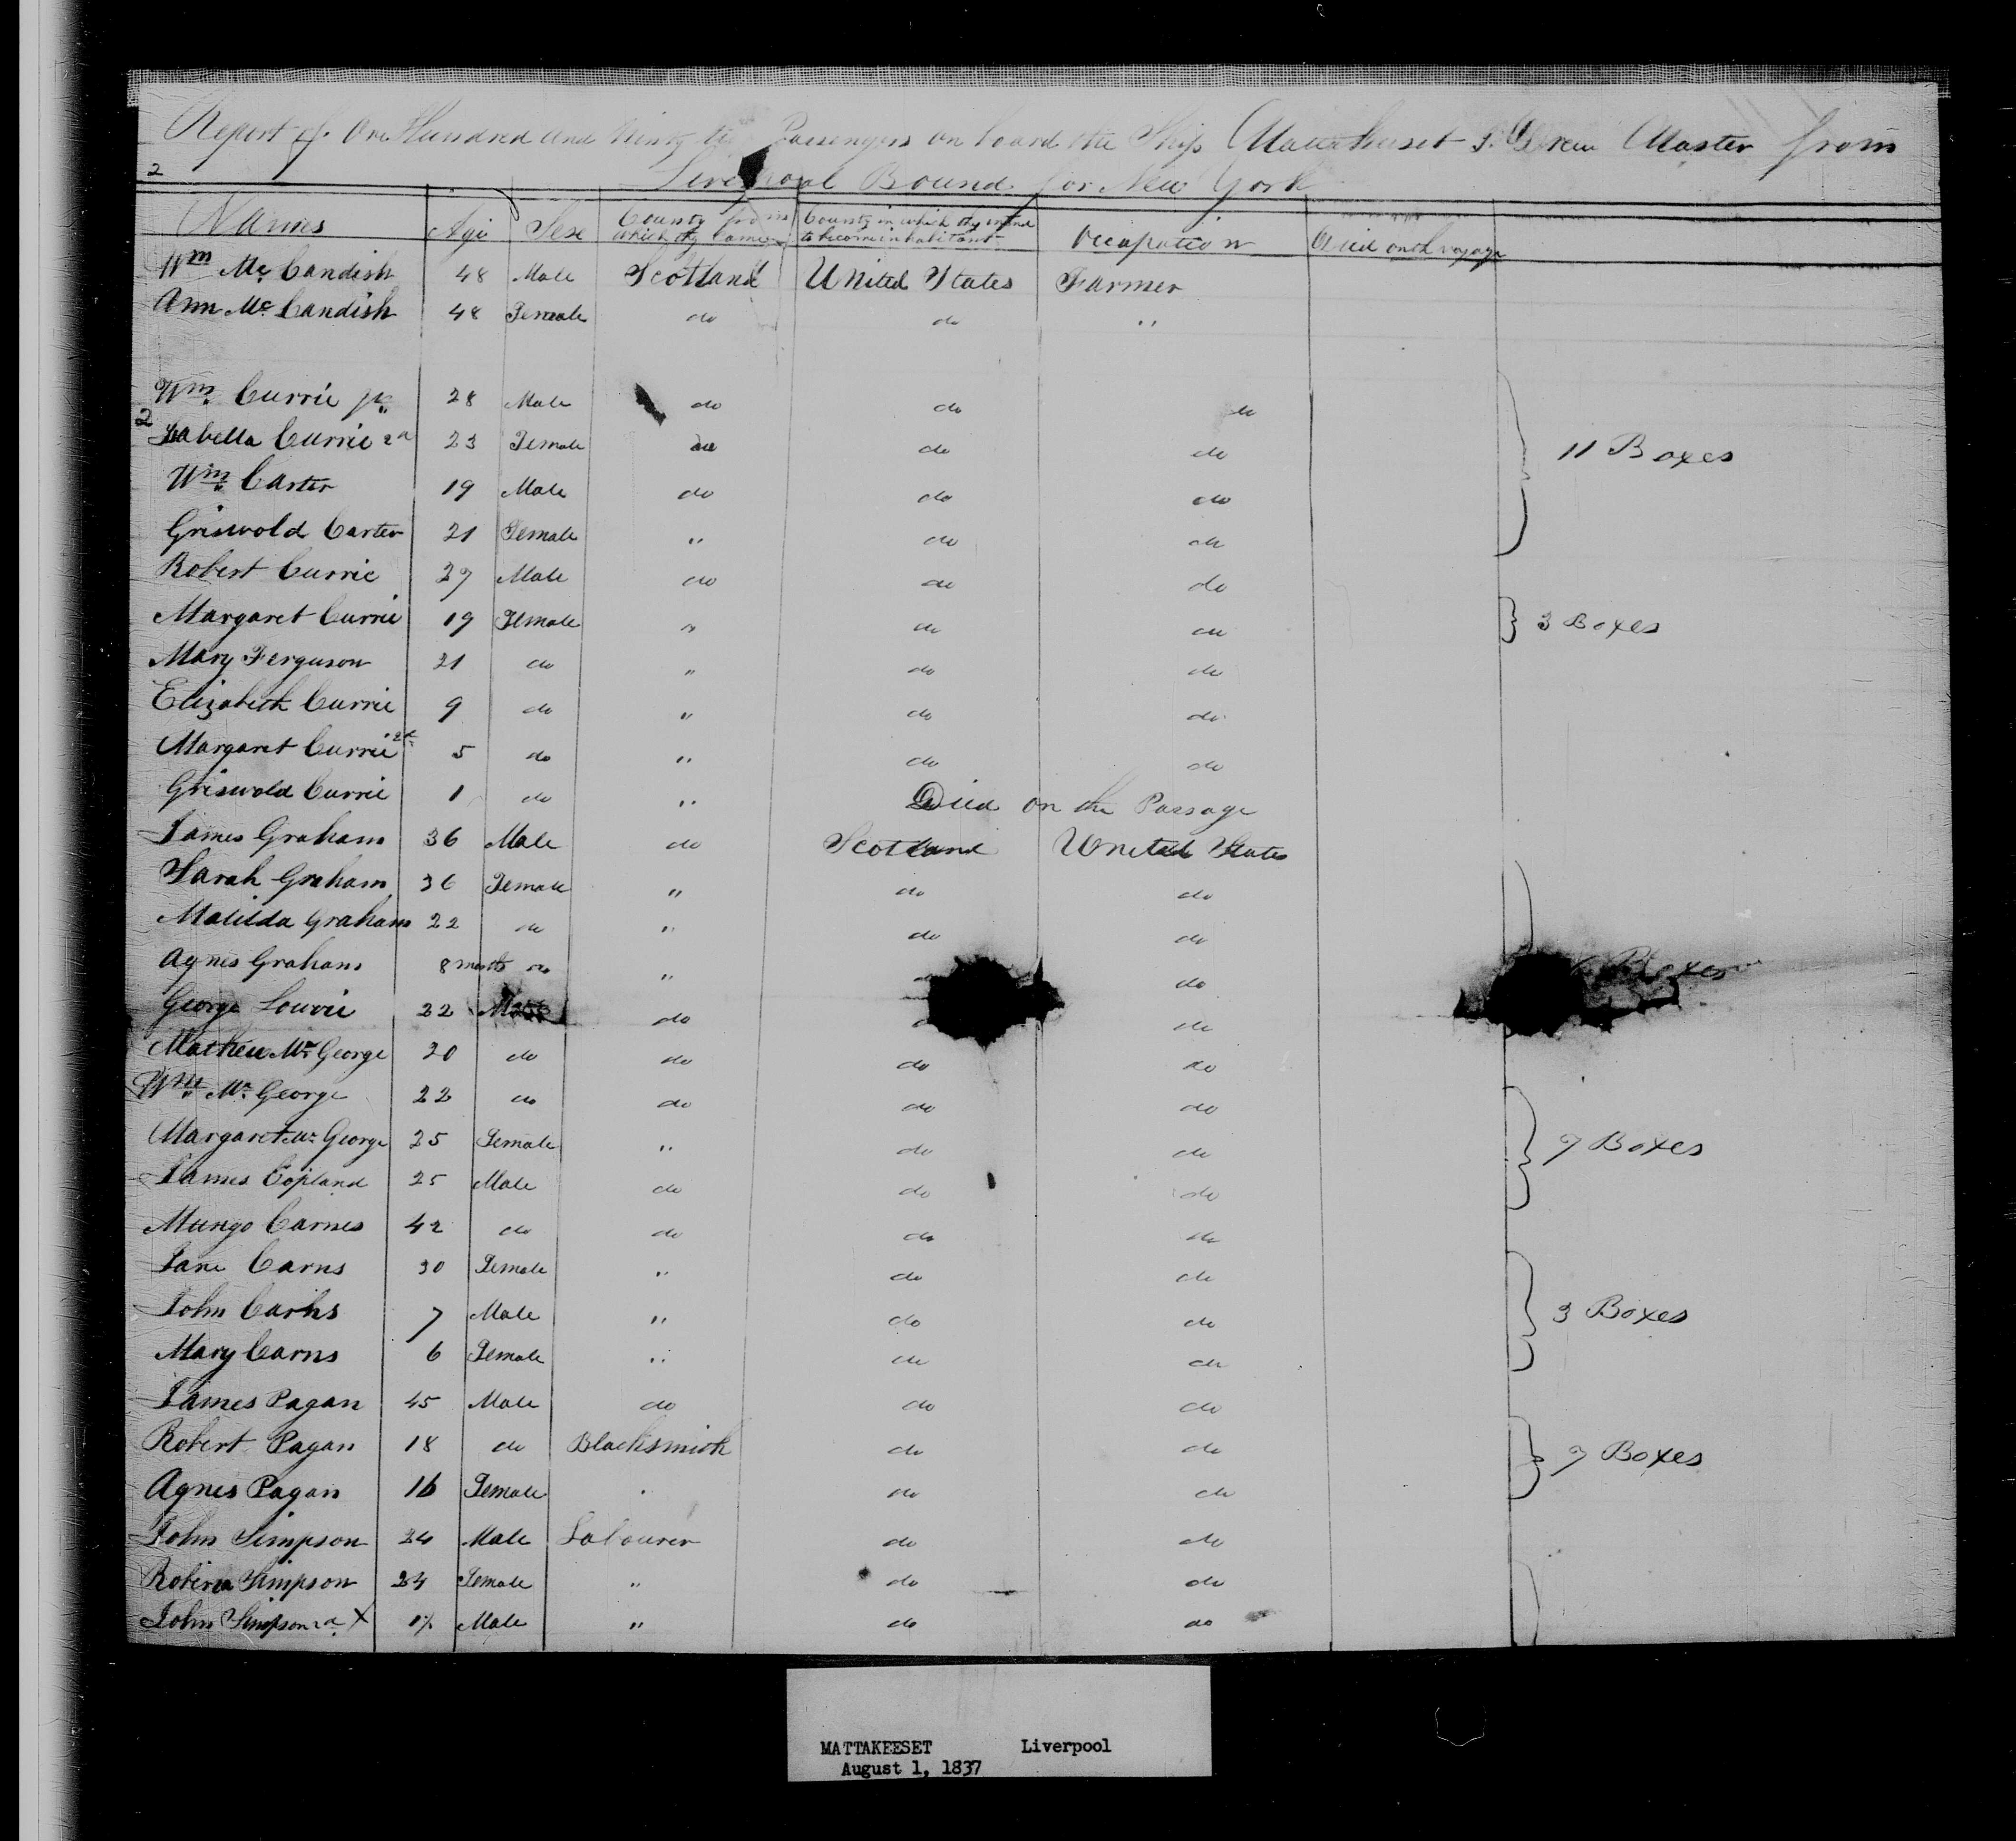 Report of One Hundred and Ninety Passengers on board the Ship Mattakeeset J. Drew Master from
2 Liverpool Bound for New York
Names Age Sexe County from which they Came County in which they intend to become inhabitants Occupation Died on the voyage
Wm Mc Candish 48 Male Scotland United States Farmer
Ann Mc Candish 48 Female do do "
Wm Currie jr 28 Male do do do
2 Isabella Currie 2d 23 Female do do do 11 Boxes
Wm Carter 19 Male do do do
Griswold Carter 21 Female " do do
Robert Currie 27 Male do do do
Margaret Currie 19 Female " do do 3 Boxes
Mary Ferguson 21 do " do do
Elizabeth Currie 9 do " do do
Margaret Currie 2d 5 do " do do
Griswold Currie 1 do " Died on the Passage
James Graham 36 Male do Scotland United States
Sarah Graham 36 Female " do do
Matilda Graham 22 do " do do
Agnes Graham 8 months do " do Boxes
George Lowrie 22 Male do do
Mathew Mc George 20 do do do do
Wm Mc George 22 do do do do
Margaret Mc George 25 Female " do do 7 Boxes
James Copland 25 Male do do do
Mungo Carnes 42 do do do do
Jane Carns 30 Female " do do
John Carns 7 Male " do do 3 Boxes
Mary Carns 6 Female " do do
James Pagan 45 Male do do do
Robert Pagan 18 do Blacksmith do do 7 Boxes
Agnes Pagan 16 Female " do do
John Simpson 24 Male Labourer do do
Robina Simpson 24 Female " do do
John Simpson 2d X Male " do do
MATTAKEESET Liverpool
August 1, 1837